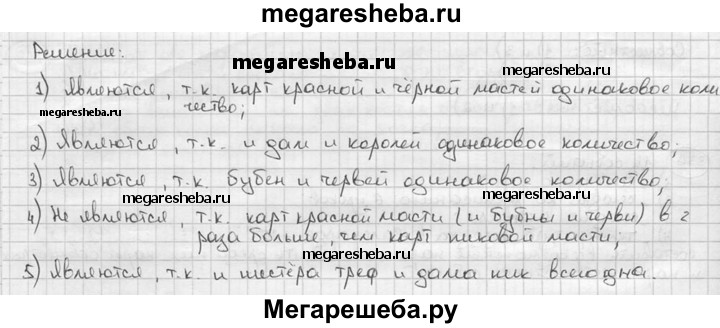 megaresheba.ru
Решение:
megaresheba.ru
1) Являются, т.к. карт красной и чёрной мастей одинаковое коли
megaresheba.ru
чество;
megaresheba.ru
2) Являются, т.к. и дам и королей одинаковое количество;
3) Являются, т.к. бубен и червей одинаковое количество;
megaresheba.ru
megaresheba.ru
4) Не являются, т.к. карт красной масти (и бубны и черви) в 2
раза больше, чем карт пиковой масти;
megaresheba.ru
5) Являются, т.к. и шестёра треф и дама пик всего одна.
Мегарешеба.ру